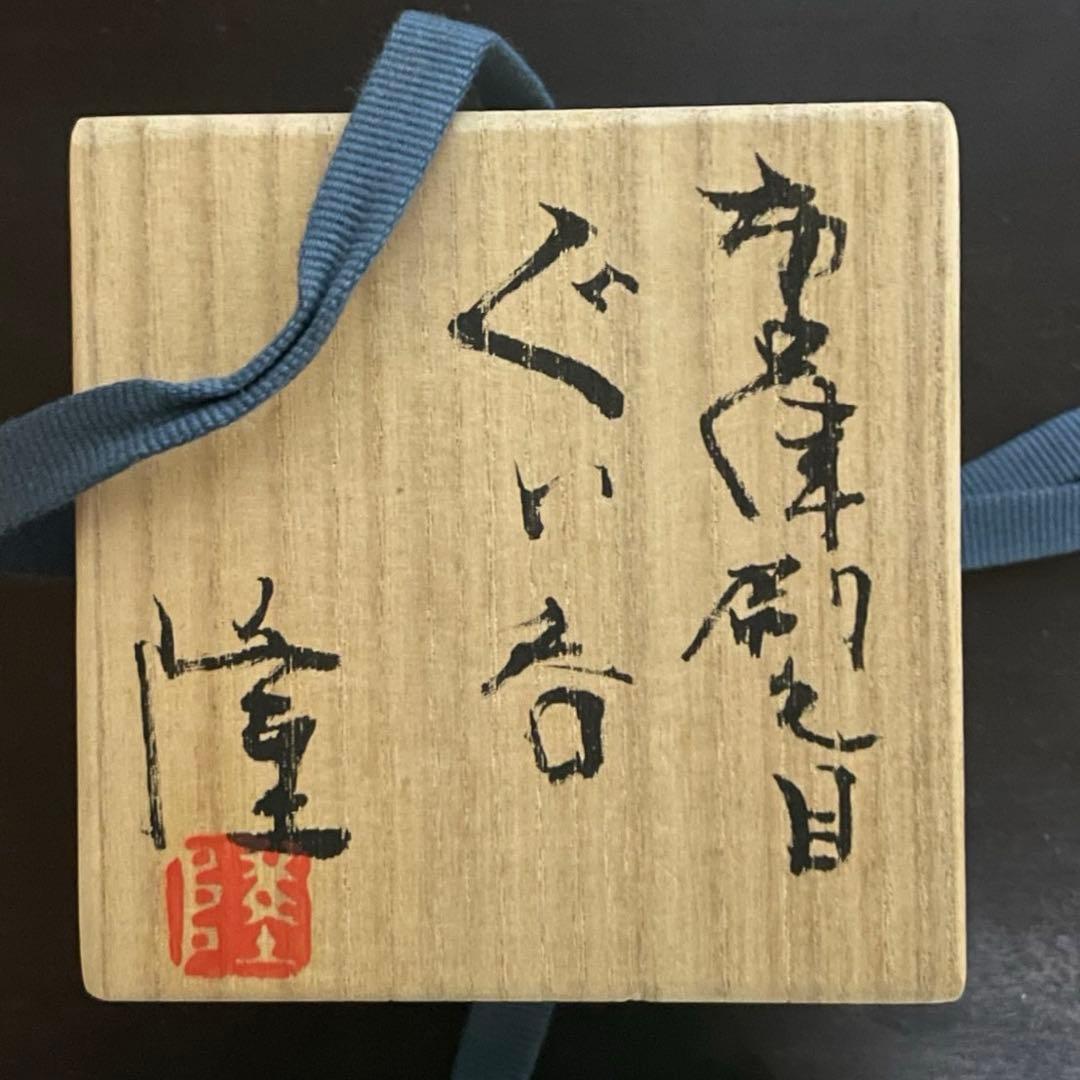 唐津刷毛目
ぐい呑
隆